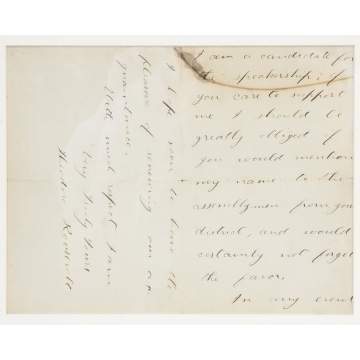 I am a candidate for
the speakership; if
you care to support
me I should be
greatly obliged if
you would mention
my name to the
assemblymen from your
district, and would
certainly not forget
the favor.
In any event
I hope soon to have the
pleasure of renewing our ac-
quaintance.
With much respect I am
Very Truly Yours
Theodore Roosevelt